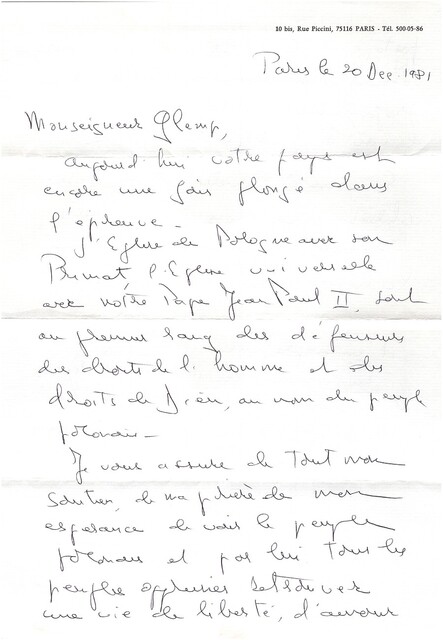 10 bis, Rue Piccini, 75116 PARIS - Tél. 500-05-86
Paris le 20 Dec. 1981
Monseigneur Glemp,
aujourd'hui votre pays est
encore une fois plongé dans
l'épreuve -
L'Eglise de Pologne avec son
Primat, l'Eglise universelle
avec notre Pape Jean Paul II, sont
au premier rang des défenseurs
des droits de l'homme et des
droits de Dieu, au nom du peuple
polonais -
Je vous assure de tout mon
soutien, de ma prière de mon
esperance de voir le peuple
polonais et par lui tous les
peuples opprimés
une vie de liberté, d'amour